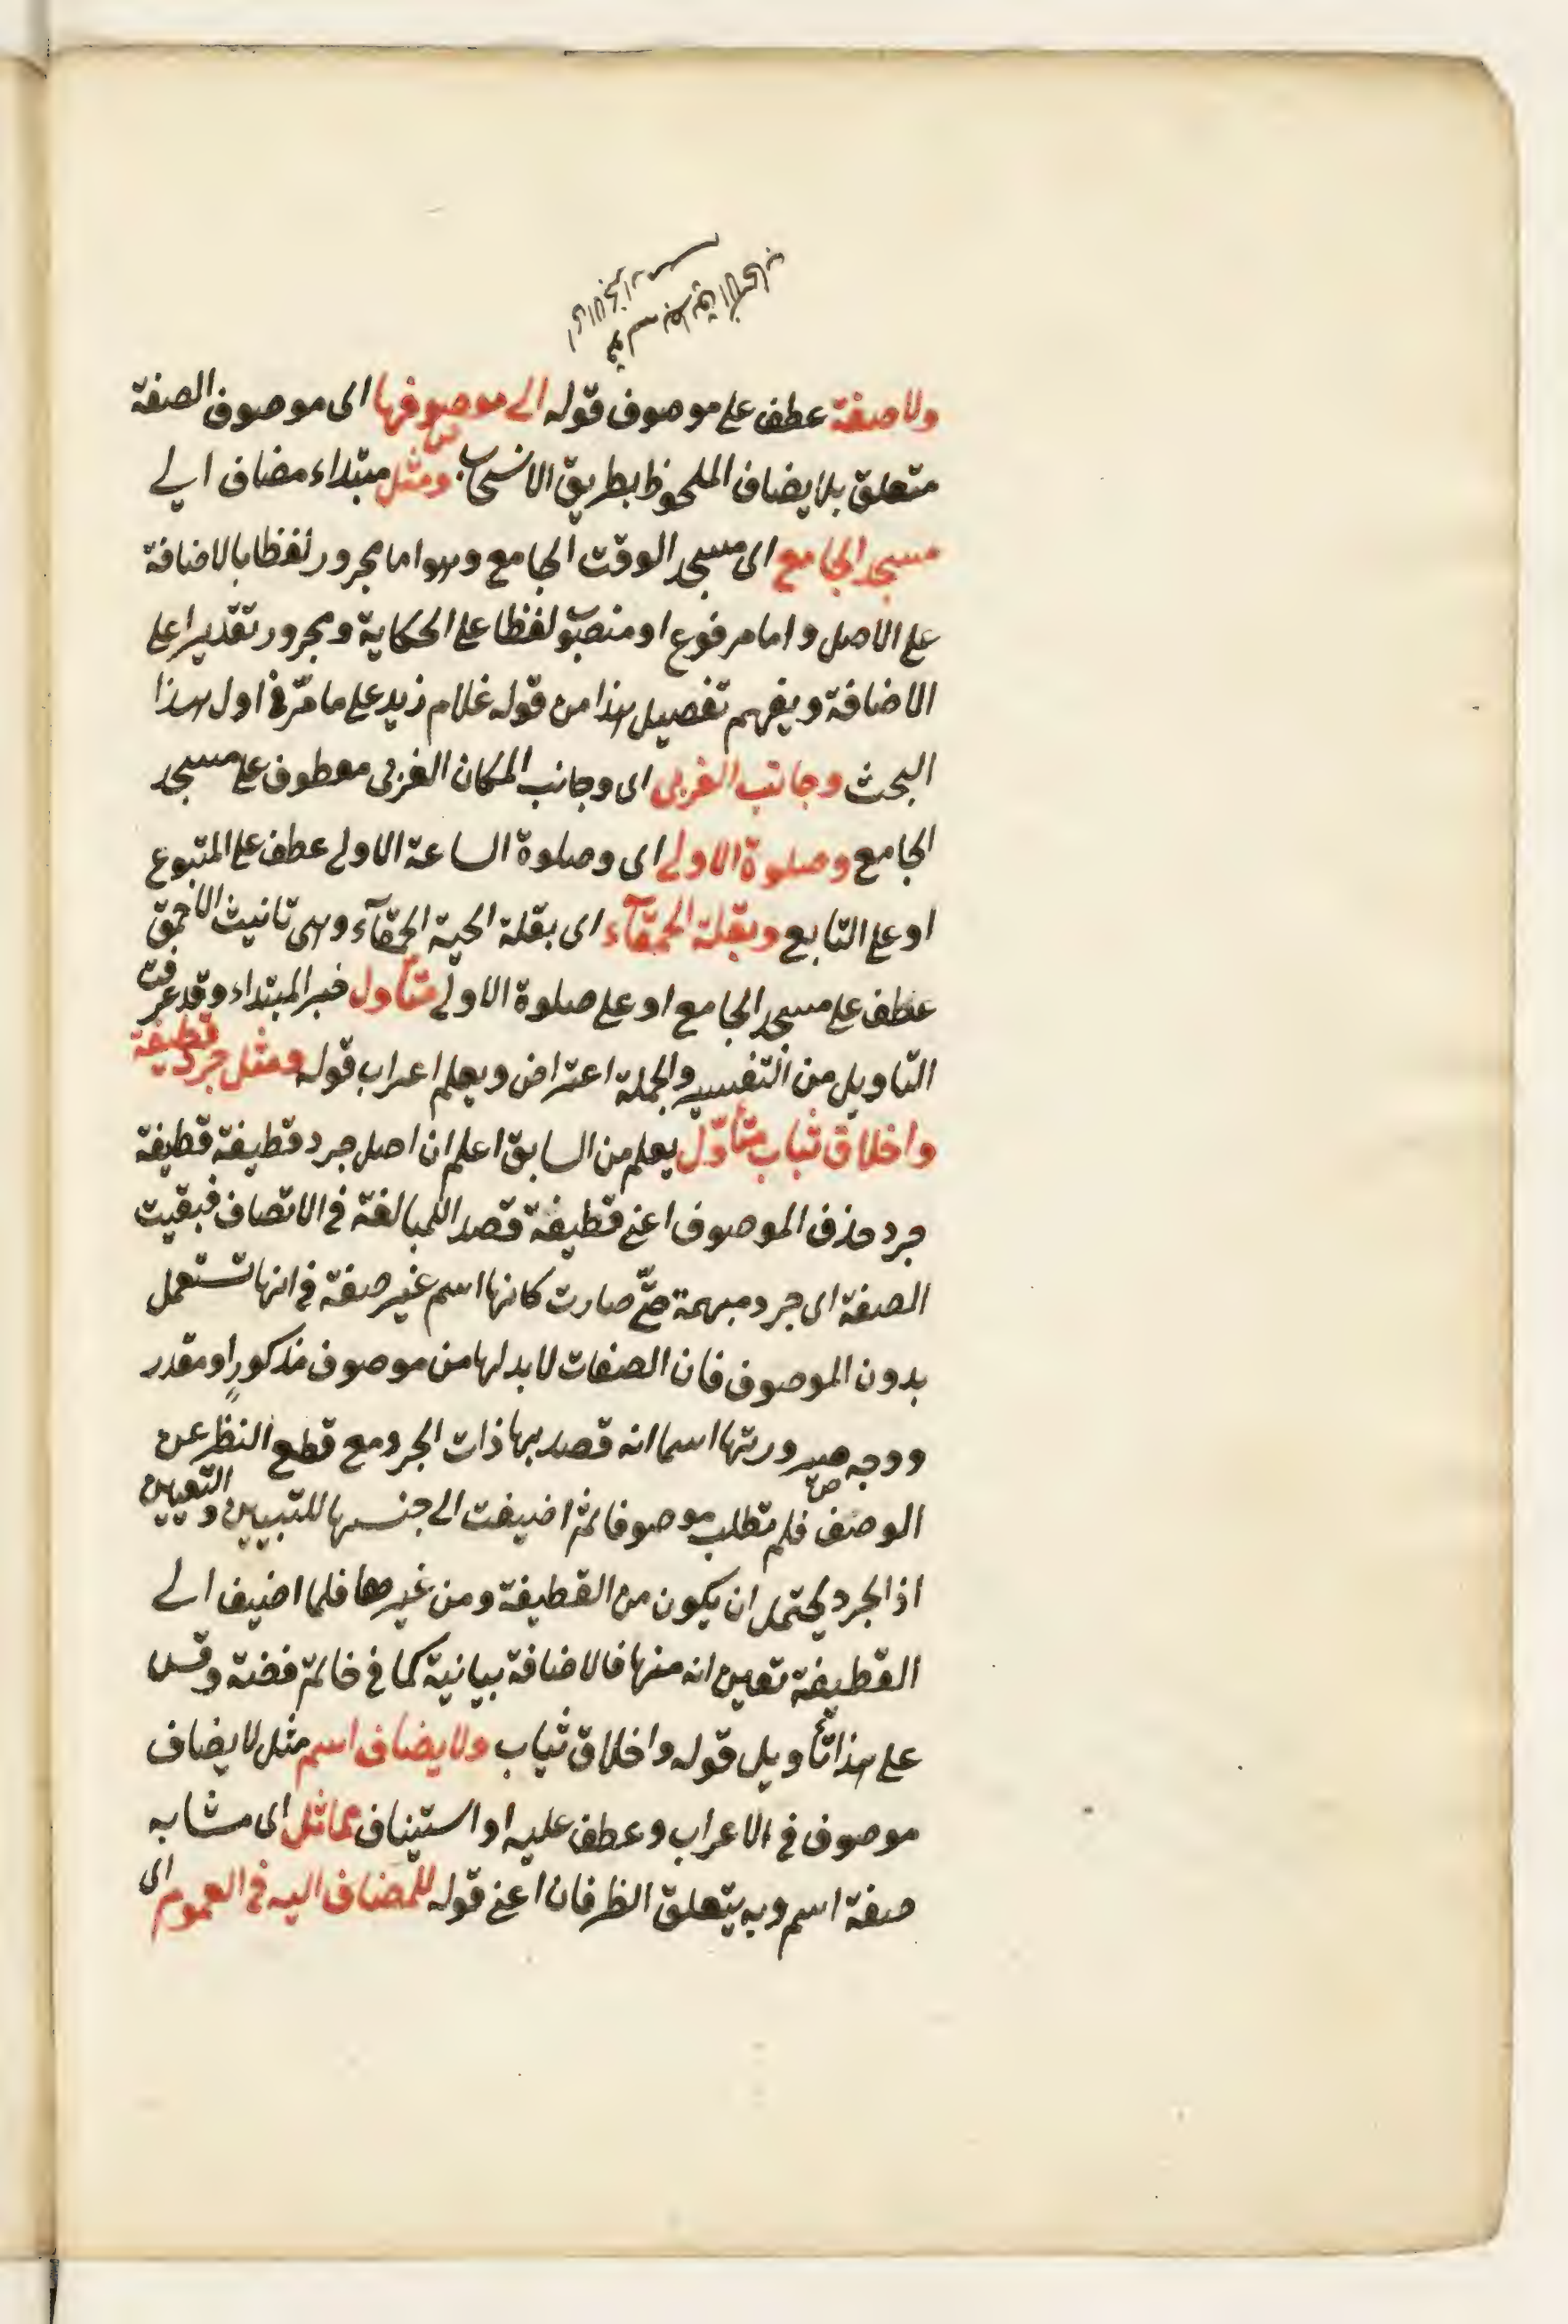 ولا صفة عطف على موصوف قوله الى موصوفها اى موصوف الصفة
متعلق بلا يضاف الملحوظ بطريق الانسحاب ومثل مبتداء مضاف الى
مسجد الجامع اى مسجد الوقت الجامع وهو اما مجرور لفظا بالاضافة
على الاصل واما مرفوع او منصوب لفظا على الحكاية ومجرور تقديرا على
الاضافة ويفهم تفصيل هذا من قوله غلام زيد على ما مرّ فى اول هذا
البحث وجانب الغربى اى وجانب المكان الغربى معطوف على مسجد
الجامع وصلوة الاولى اى وصلوة الساعة الاولى عطف على المتبوع
او على التابع وبقلة الحمقآء اى بقلة الحية الحمقآء وهى تانيث الاحمق
عطف على مسجد الجامع او على صلوة الاولى متأول خبر المبتداء وقد عرفت
التاويل من التفسير والجملة اعتراض ويعلم اعراب قوله ومثل جرد قطيفة
واخلاق ثياب متأوّل يعلم من السابق اعلم ان اصل جرد قطيفة قطيفة
جرد حذف الموصوف اعنى قطيفة قصد اللمبالغة فى الاتصاف فبقيت
الصفة اى جرد مبهمة حتّى صارت كانها اسم غير صفة فى انها تستعمل
بدون الموصوف فان الصفات لا بد لها من موصوف مذكورٍ او مقدر
ووجه صيرورتها اسما انه قصد بها ذات الجرد مع قطع النظر عن
الوصف فلم تطلب موصوفا ثم اضيفت الى جنسها للتبيين والتعيين
اذ الجرد يحتمل ان يكون من القطيفة ومن غيرها فلما اضيف الى
القطيفة تعين انه منها فالاضافة بيانية كما فى خاتم فضة وقس
على هذا تأويل قوله واخلاق ثياب ولا يضاف اسم مثل لا يضاف
موصوف فى الاعراب وعطف عليه او استيناف مماثل اى مشابه
صفة اسم وبه يتعلق الظرفان اعنى قوله للمضاف اليه فى العموم اى